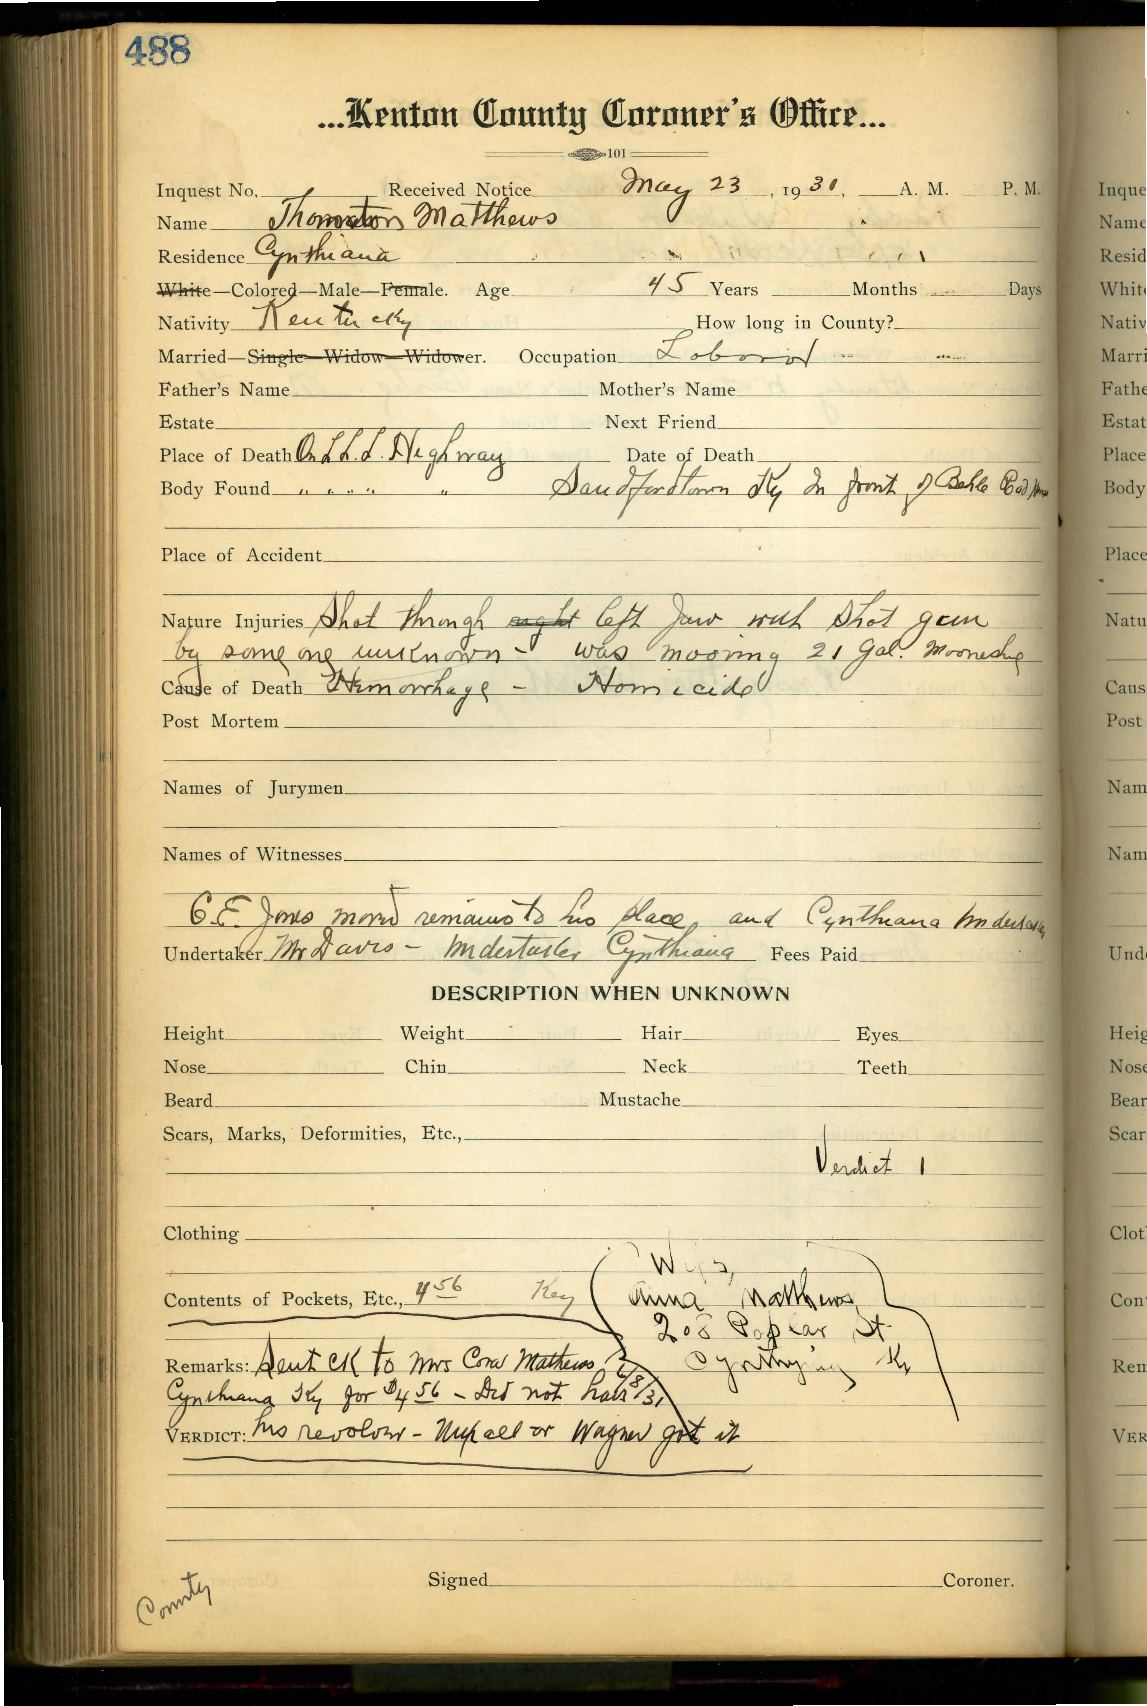 488
...Kenton County Coroner's Office...
101
Inquest No. Received Notice May 23, 1930, A. M. P. M.
Name Thornton Matthews
Residence Cynthiana
White—Colored—Male—Female. Age 45 Years Months Days
Nativity Kentucky How long in County?
Married—Single—Widow—Widower. Occupation Laborer
Father's Name Mother's Name
Estate Next Friend
Place of Death On L.L.L. Highway Date of Death
Body Found " " " " " Sandfordtown Ky In front of Behle Rd
Place of Accident
Nature Injuries Shot through right left Jaw with shot gun
by some one unknown - was mooving 21 Gal. Mooneshine
Cause of Death Hemorrhage - Homicide
Post Mortem
Names of Jurymen
Names of Witnesses
C.E. Jones moved remains to his place and Cynthiana Undertaker
Undertaker Mr Davis - Undertaker Cynthiana Fees Paid
DESCRIPTION WHEN UNKNOWN
Height Weight Hair Eyes
Nose Chin Neck Teeth
Beard Mustache
Scars, Marks, Deformities, Etc.,
Verdict 1
Clothing
Wife,
Contents of Pockets, Etc., 4 56 Key Anna Matthews
208 Poplar St.
Remarks: Sent ck to Mrs Cora Mathews Ky
Cynthiana Ky for $4 56 - Did not have
VERDICT: his revolver - or Wagner got it
Signed Coroner.
County
Inque
Name
Resid
White
Nativ
Marri
Fathe
Estat
Place
Body
Place
Natu
Caus
Post
Nam
Nam
Unde
Heig
Nose
Bear
Scar
Clot
Con
Ren
VER